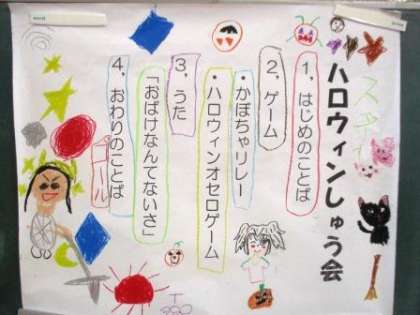 ハロウィンしゅう会
1，はじめのことば
2，ゲーム
・かぼちゃリレー
・ハロウィンオセロゲーム
3，うた
「おばけなんてないさ」
4，おわりのことば
ゴール